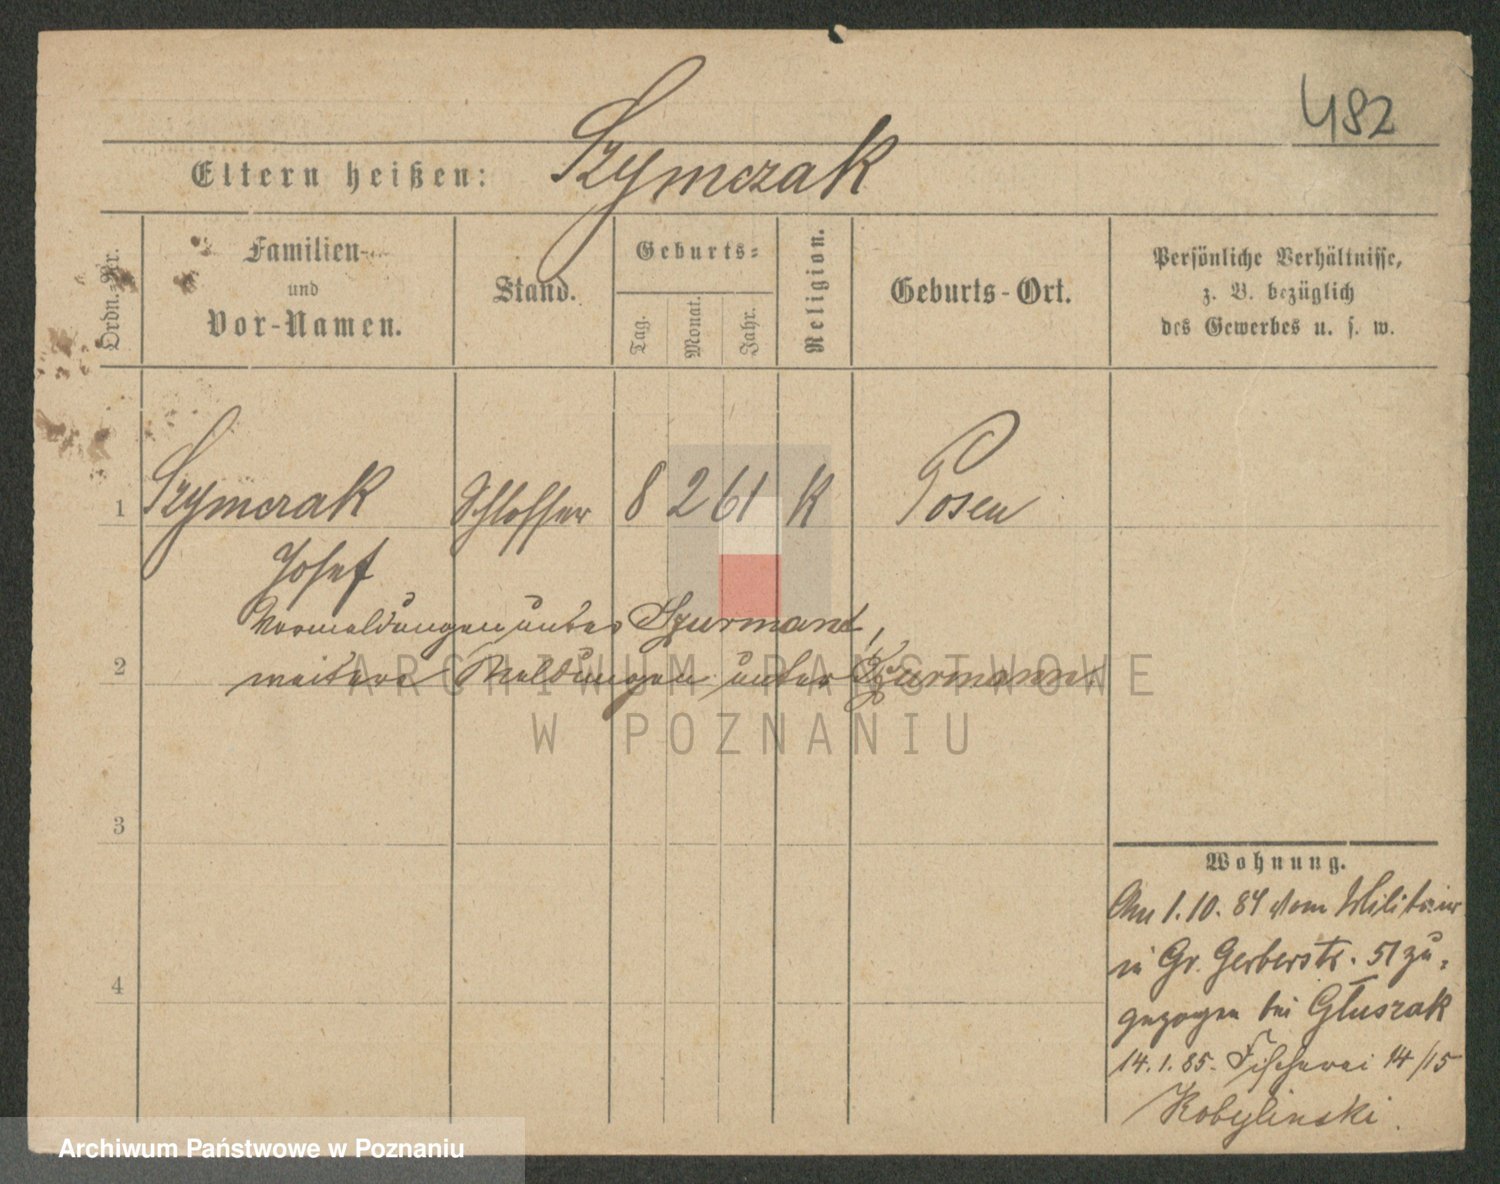 482
Eltern heißen: Szymczak
Ordn.-Nr.
Familien-
und
Vor-Namen.
Stand.
Geburts-
Tag.
Monat.
Jahr.
Religion.
Geburts-Ort.
Persönliche Verhältnisse,
z. B. bezüglich
des Gewerbes u. s. w.
1 Szymczak Schlosser 8 2 61 K Posen
Josef
Vormeldungen unter Szurmant,
2 weitere Meldungen unter
ARCHIWUM PAŃSTWOWE
W POZNANIU
3
4
Wohnung.
Am 1.10.84 vom Militair
in Gr. Gerberstr. 51 zu-
gezogen bei Głuszak
14.1.85. Fischerei 14/15
Kobylinski.
Archiwum Państwowe w Poznaniu